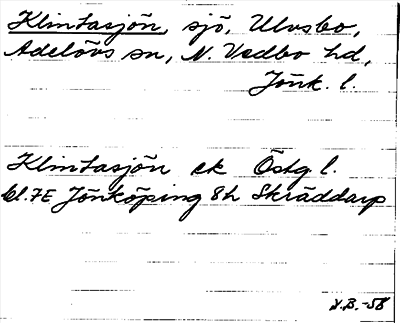 Klintasjön, sjö, Ulvsbo,
Adelövs sn, N. Vedbo hd,
Jönk. l.
Klintasjön ek Östg l.
bl. 7E Jönköping 8h Skräddarp
N.B.-58